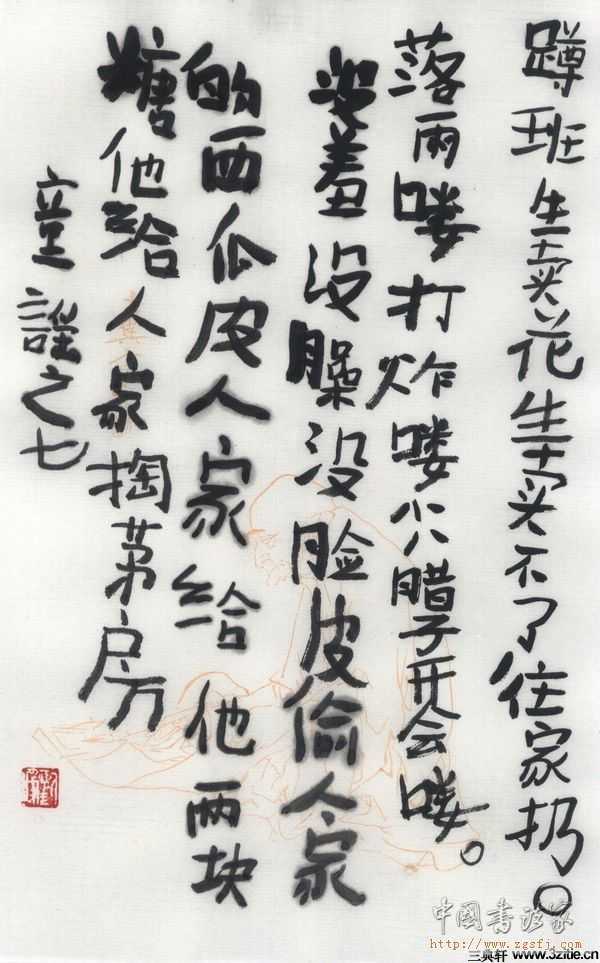 蹲班生卖花生卖不了往家扔。
落雨喽打炸喽小八腊子开会喽。
羞没臊没脸皮偷人家
的西瓜皮人家给他两块
糖他给人家掏茅房
童謠之七
中國書法家
http://www.zgsfj.com
三典轩 www.3zitie.cn